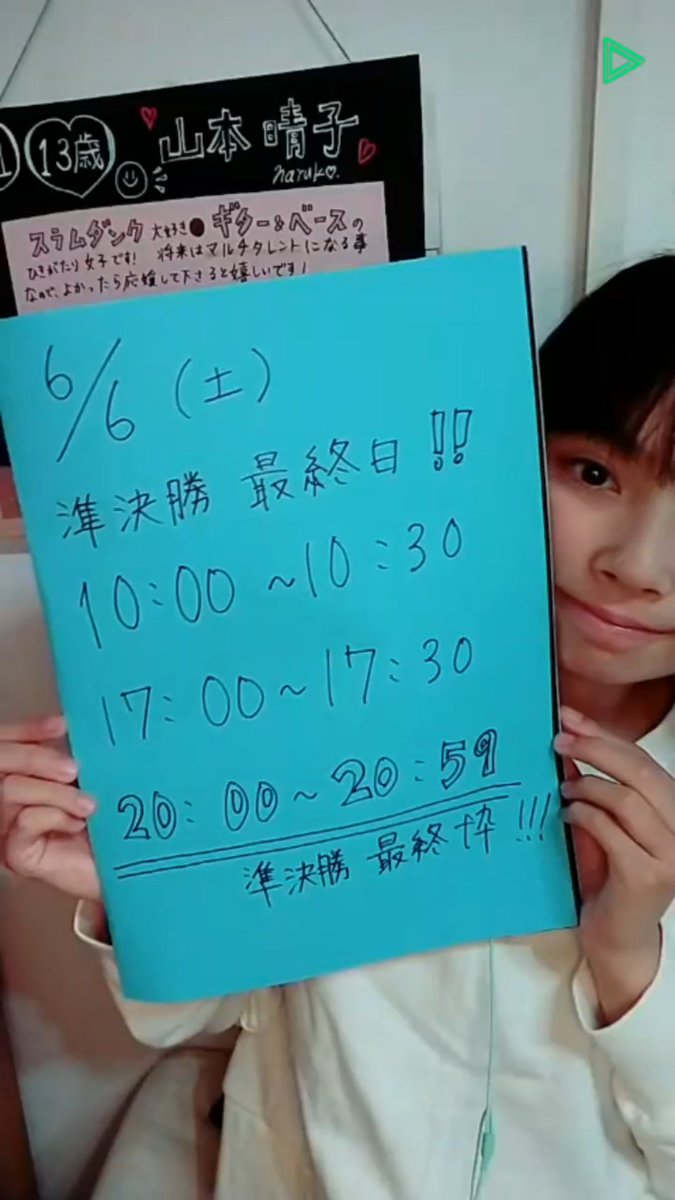 13歳 山本 晴子
haruko.
スラムダンク 大好き ギター&ベースの
ひきがたり女子です! 将来はマルチタレントになる事
なので、よかったら応援して下さると嬉しいです!
6/6 (土)
準決勝 最終日!!
10:00~10:30
17:00~17:30
20:00~20:59
準決勝 最終枠!!!